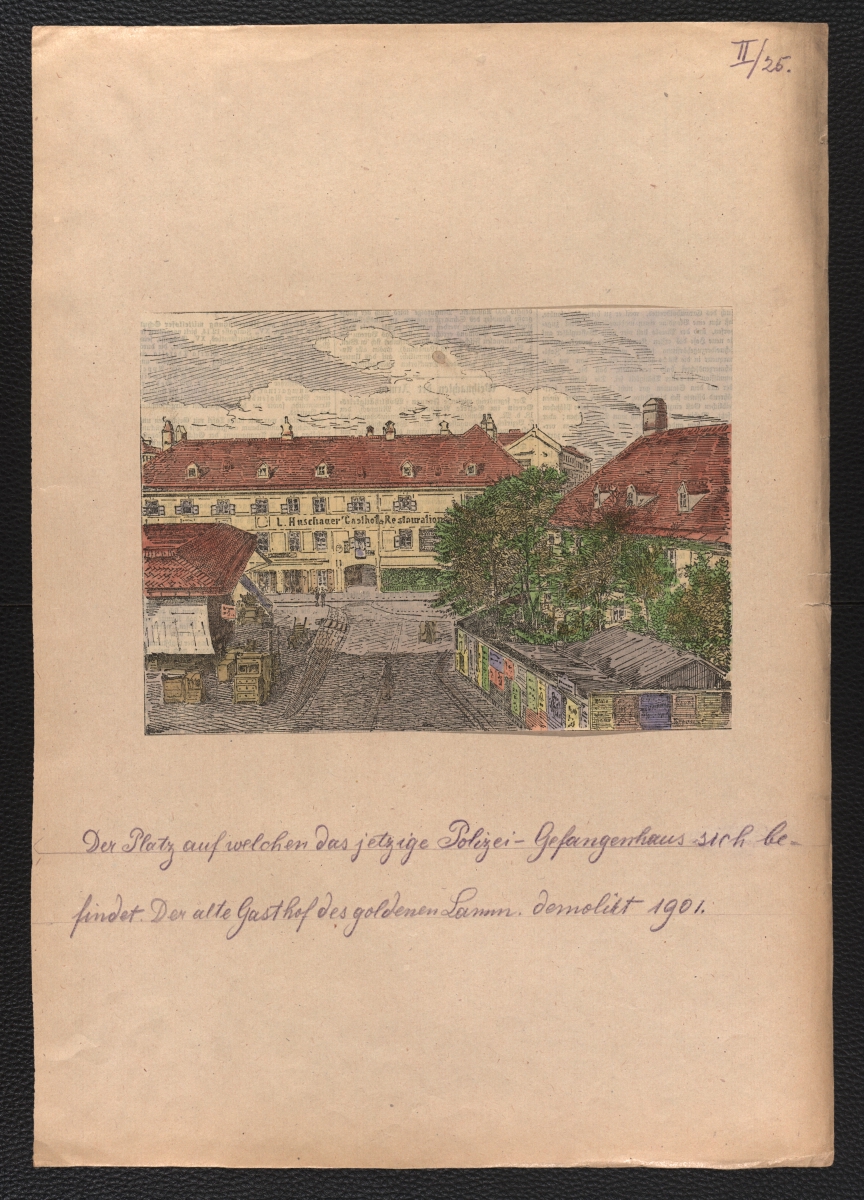 II/25.
L. Anschauer Gasthof u. Restauration
Der Platz auf welchen das jetzige Polizei-Gefangenhaus sich be-
findet. Der alte Gasthof des goldenen Lamm. demolirt 1901.